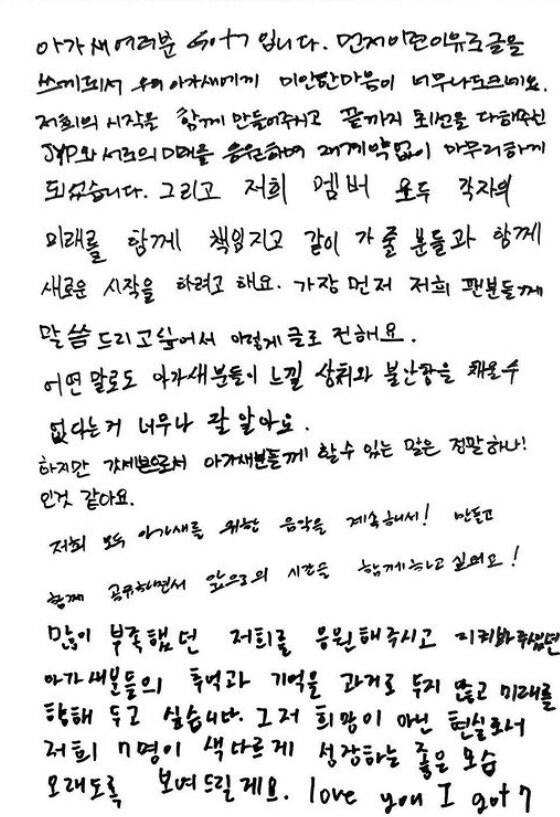 아가새여러분 Got7입니다. 먼저이런이유로글을
쓰게되서 우리아가새에게 미안한마음이 너무나도크네요.
저희의 시작을 함께 만들어주시고 끝까지 최선을 다해주신
JYP와 서로의 미래를 응원하며 재계약없이 마무리하게
되었습니다. 그리고 저희 멤버 모두 각자의
미래를 함께 책임지고 같이 가 줄 분들과 함께
새로운 시작을 하려고 해요. 가장 먼저 저희 팬분들께
말씀드리고싶어서 이렇게 글로 전해요.
어떤 말로도 아가새분들이 느낄 상처와 불안함을 채울수
없다는거 너무나 잘 알아요.
하지만 갓세븐으로서 아가새분들께 할수 있는 말은 정말하나!
인것 같아요.
저희 모두 아가새를 위한 음악을 계속해서! 만들고
함께 공유하면서 앞으로의 시간을 함께하고싶어요!
많이 부족했던 저희를 응원해주시고 지켜봐주셨던
아가새분들의 추억과 기억을 과거로 두지 않고 미래를
향해 두고 싶습니다. 그저 희망이 아닌 현실로서
저희 7명이 색다르게 성장하는 좋은 모습
오래도록 보여드릴게요. love you I got7